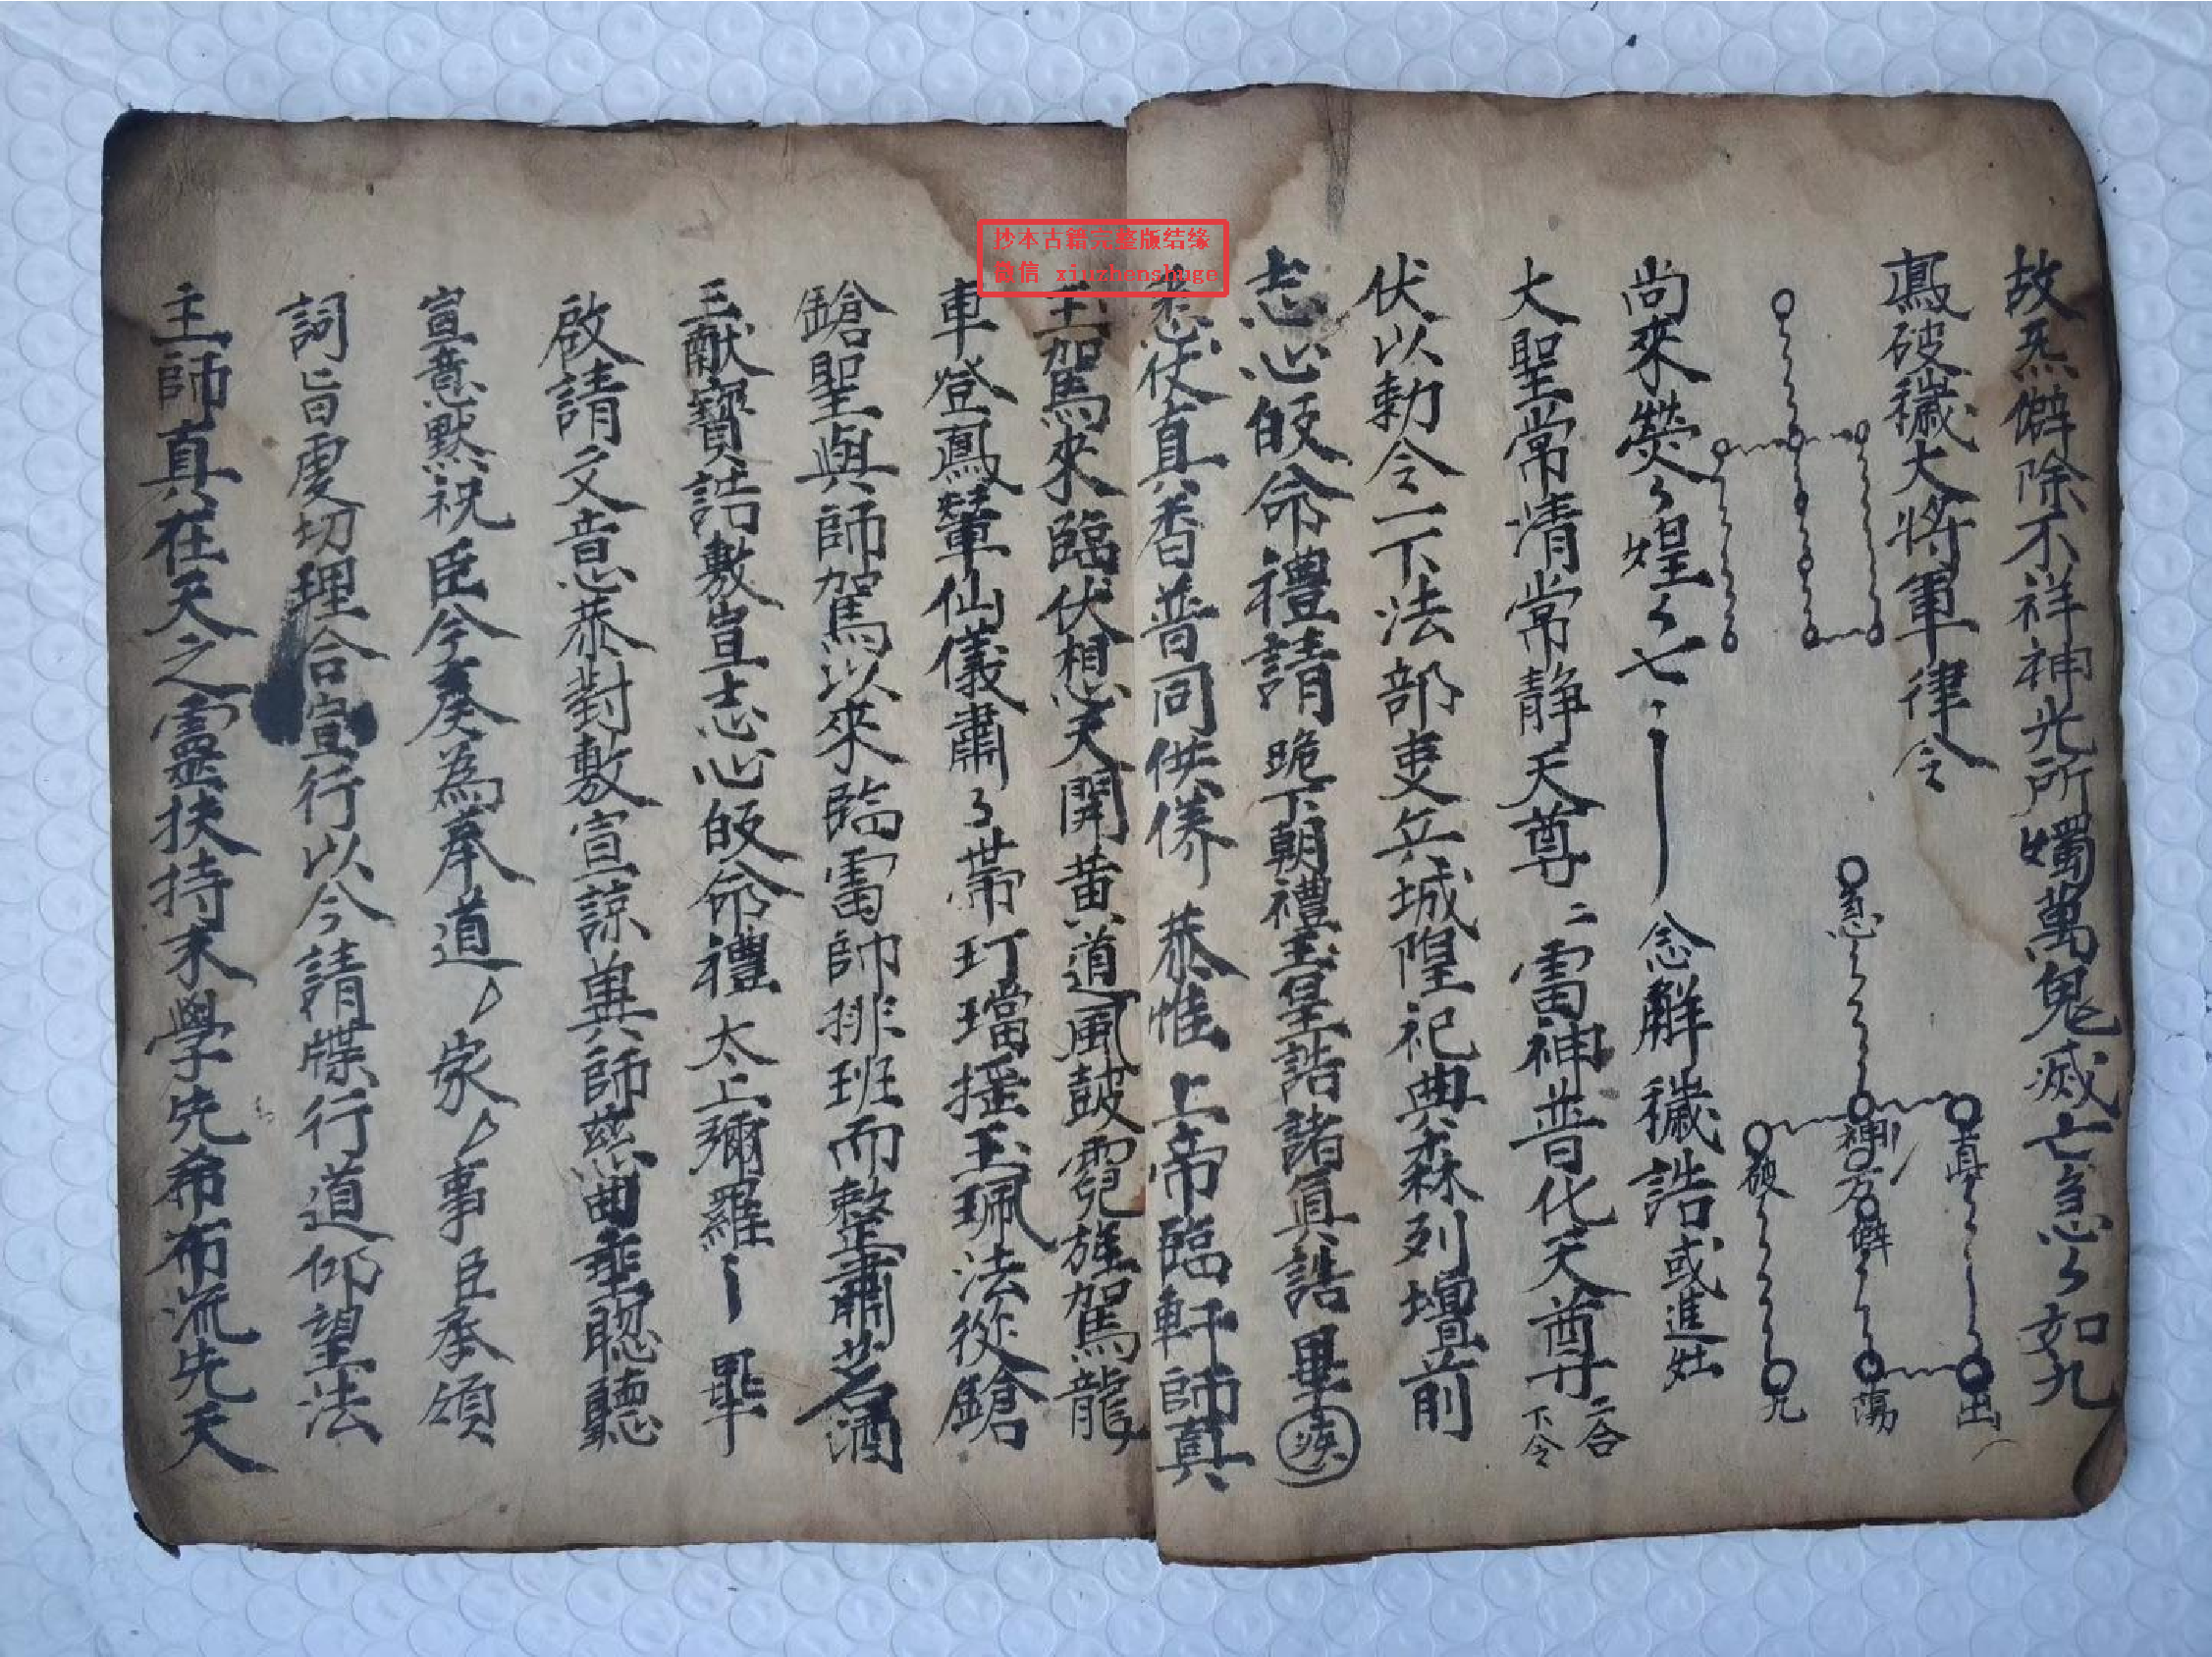 故炁僻除不祥神光所燭萬鬼滅亡急〻如九
鳳破穢大將軍律令
急
神
方
僻
蕩
真
出
破
九
尚來熒〻煌〻七 念解穢誥或進灶
大聖常清常靜天尊 二 雷神普化天尊 二合下令
伏以勅令一下法部吏兵城隍祀典森列壇前
志心皈命禮請 跪下朝禮玉皇誥諸真誥畢
伏真香普同供養 恭惟 上帝臨軒師真
玉駕來臨伏想天開黄道風皷霓旌駕龍
車登鳳輦仙儀肅〻帶玎璫搖玉珮法從鎗
鎗聖與師駕以來臨雷師排班而整肅茗酒
三獻寶誥敷宣志心皈命禮 太上彌羅 畢
啟請文意恭對敷宣諒冀師慈曲垂聰聽
宣意黙祝臣今奏為奉道 家 事臣奉頒
詞旨虔切理合宣行以今請牒行道仰望法
主師真在天之靈扶持末學先希布流先天
抄本古籍完整版结缘
微信 xiuzhenshuge